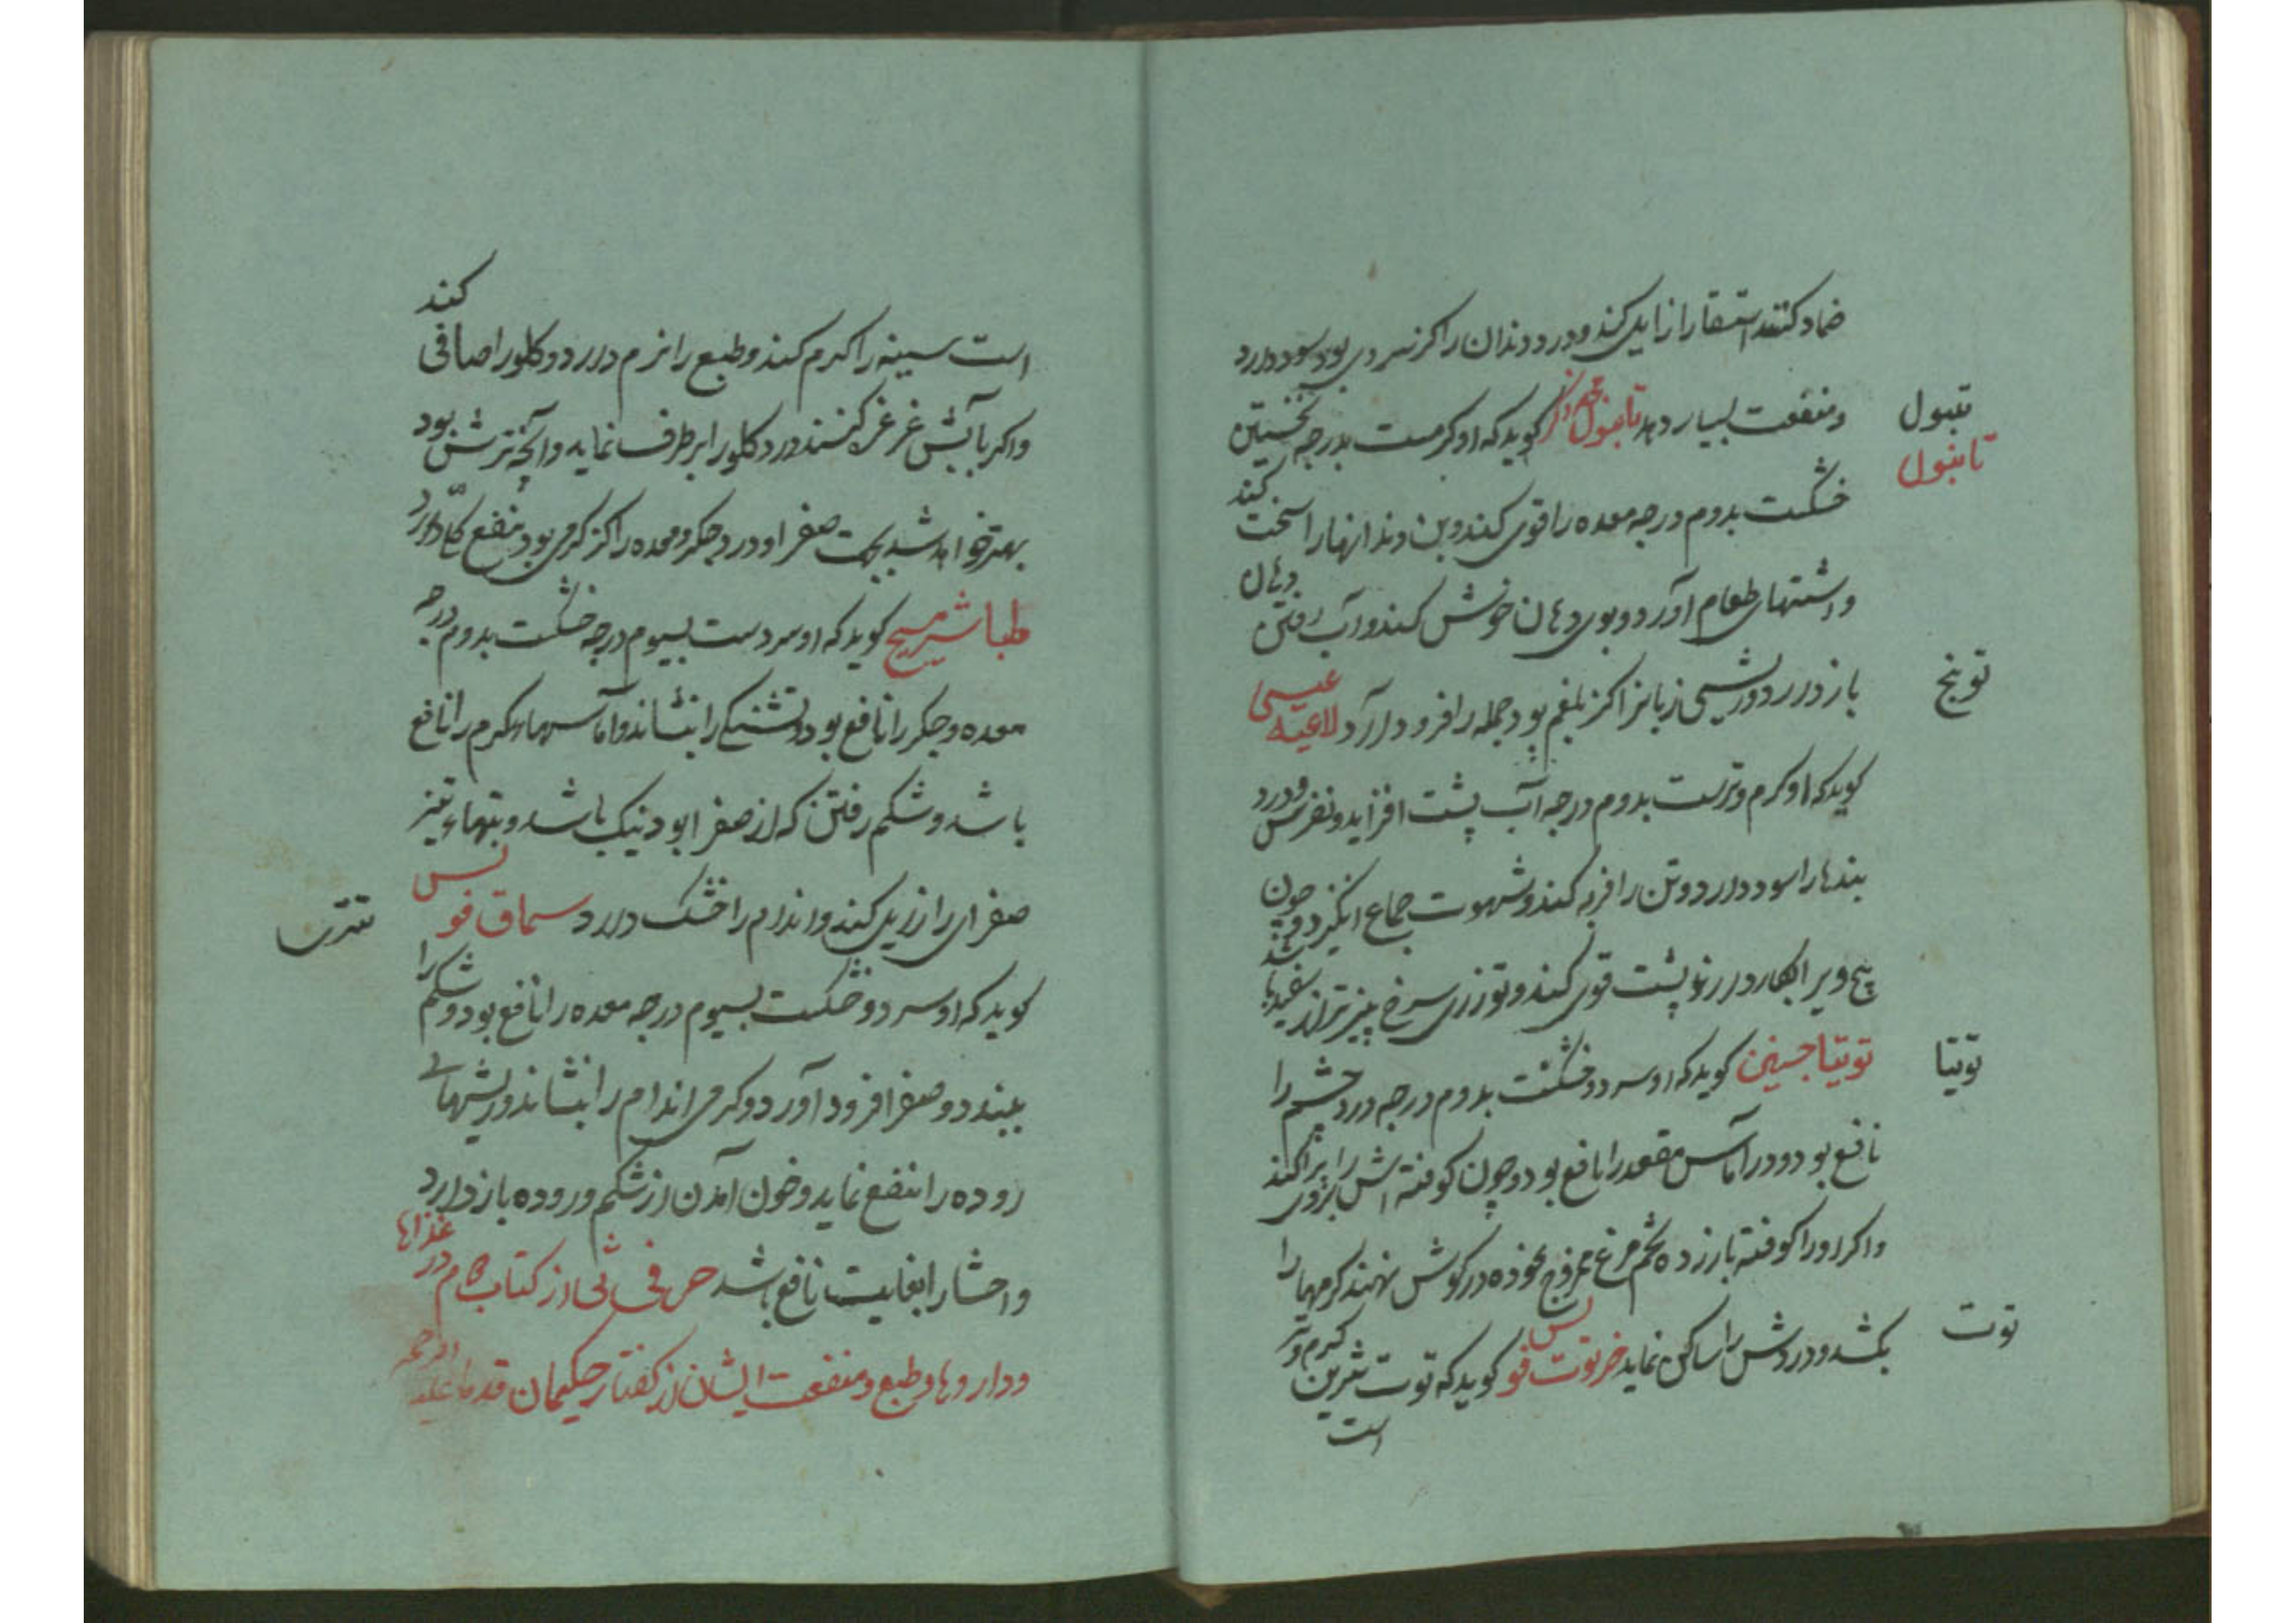 ضماد کنند استسقا را زایل کند و درد دندان را کز سردی بود سود دارد
تنبول
و منفعت بسیار دهد تانبول گوید که او گرمست بدرجه نخستین
تانبول
خشکست بدوم درجه معده را قوی کند و بن دندانها را سخت کند
و اشتهای طعام آورد و بوی دهان خوش کند و آب رفتن دهان
باز دارد و ریشی زبانرا کز بلغم بود جمله را فرود دارد لاعیه عیسی
گوید که او گرم و ترست بدوم درجه آب پشت افزاید و نقرس و درد
بندها را سود دارد و تن را فربه کند و شهوت جماع انگیزد و چون
پشت قوی کند و تودری سرخ تیزتر از سفید
توتیا
توتیا گوید که او سرد و خشکست بدوم درجه درد چشم را
نافع بود و در آماس مقعد را نافع بود و چون کوفته اش را بر
و اگر او را کوفته با زرده تخم مرغ ممزوج نموده در گوش نهند کرمها را
توت
بکشد و دردش را ساکن نماید خرتوت فولس گوید که توت شیرین گرم و تر
است
است سینه را گرم کند و طبع را نرم دارد و گلو را صافی کند
و اگر بآبش غرغره کنند درد گلو را برطرف نماید و آنچه ترش بود
بهتر خواهد شد بجهت صفرا و درد جگر و معده را کز گرمی بود نفع دارد
طباشیر مسیح گوید که او سردست بسیوم درجه خشکست بدوم درجه
معده و جگر را نافع بود و تشنگی را بنشاند و آماسهاء گرم را نافع
باشد و شکم رفتن که از صفرا بود نیک باشد و تبهاء تیز
صفرای را زایل کند و اندام را خشک دارد سماق فولس
گوید که او سرد و خشکست بسیوم درجه معده را نافع بود و شکم را
ببندد و صفرا فرود آورد و گرمی اندام را بنشاند و ریشهای
روده را نفع نماید و خون آمدن از شکم و روده باز دارد
و احشا را بغایت نافع باشد حرف ثی از کتاب در غذاها
و داروها و طبع و منفعت ایشان از گفتار حکیمان قدما علیه الرحمه